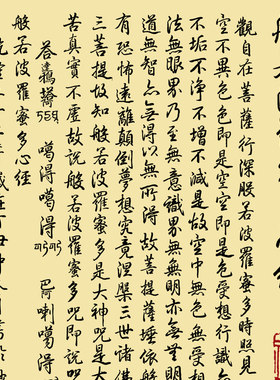 觀自在菩薩行深般若波羅蜜多時照見
空不異色色即是空空即是色受想行識
不垢不淨不增不減是故空中無色無受想
法無眼界乃至無意識界無無明亦無無明
道無智亦無得以無所得故菩提薩埵依般
有恐怖遠離顛倒夢想究竟涅槃三世諸佛
三菩提故知般若波羅蜜多是大神咒是大
苦真實不虛故說般若波羅蜜多咒即說咒
噶得噶得 巴喇噶得
般若波羅蜜多心經